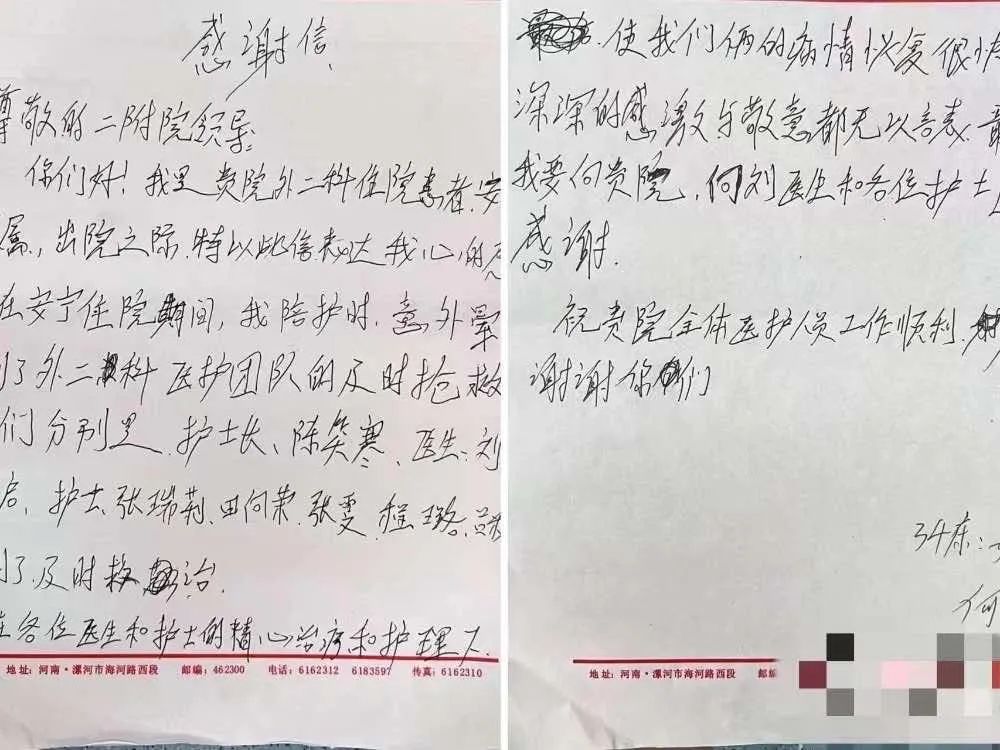 感谢信
尊敬的二附院领导:
你们好!我是贵院外二科住院患者,安
属,出院之际,特以此信表达我心的
在安宁住院期间,我陪护时,意外晕
到了外二科医护团队的及时抢救
们分别是,护士长、陈笑寒、医生、刘
启、护士、张瑞莉、田向荣、张雯、程璐、
到了及时救治.
在各位医生和护士的精心治疗和护理下
地址:河南·漯河市海河路西段 邮编:462300 电话:6162312 6183597 传真:6162310
使我们俩的病情恢复很快
深深的感激与敬意都无以言表.最
我要向贵院,向刘医生和各位护士
感谢.
祝贵院全体医护人员工作顺利.
谢谢你们
34床:
何
地址:河南·漯河市海河路西段 邮编